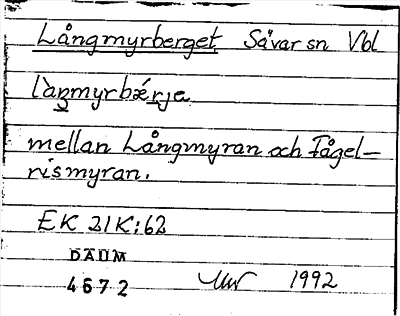 Långmyrberget Sävar sn Vbl
làŋmyrbǽrje
mellan Långmyran och Fågel-
rismyran.
EK 21K:62
DAUM
4672
1992